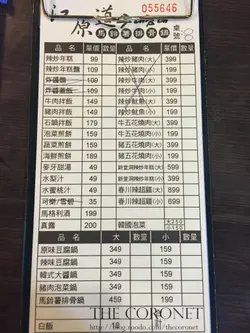 055646
江原道
馬鈴薯排骨鍋
桌號 8
品名 單價 數量 品名 單價 數量
辣炒年糕 99 辣炒豬肉(大) 399
辣炒年糕麵 109 辣炒豬肉(小)
炸醬麵 辣炒牛肉(大) 399
炸醬飯 109 辣炒牛肉(小)
牛肉拌飯 109 辣炒魷魚(大) 399
豬肉拌飯 109 辣炒魷魚(小)
石鍋拌飯 179 牛五花燒肉(大) 399
泡菜煎餅 159 牛五花燒肉(小)
蔬菜煎餅 159 豬五花燒肉(大) 399
海鮮煎餅 159 豬五花燒肉(小)
麥牙甜湯 49 新沙洞 (大) 899
水梨汁 49 新沙洞 (小) 699
水蜜桃汁 49 春川辣超雞(大) 699
可樂/雪碧 35 春川辣超雞(小)
馬格利酒 199
真露 200 韓國泡菜
品名 大 數量 小 數量
原味豆腐鍋 349 159
辣味豆腐鍋 349 159
韓式大醬鍋 349 159
豬肉泡菜鍋 349 159
馬鈴薯排骨鍋 459 199
白飯
THE CORONET
http://blog.modo.com/thecoronet